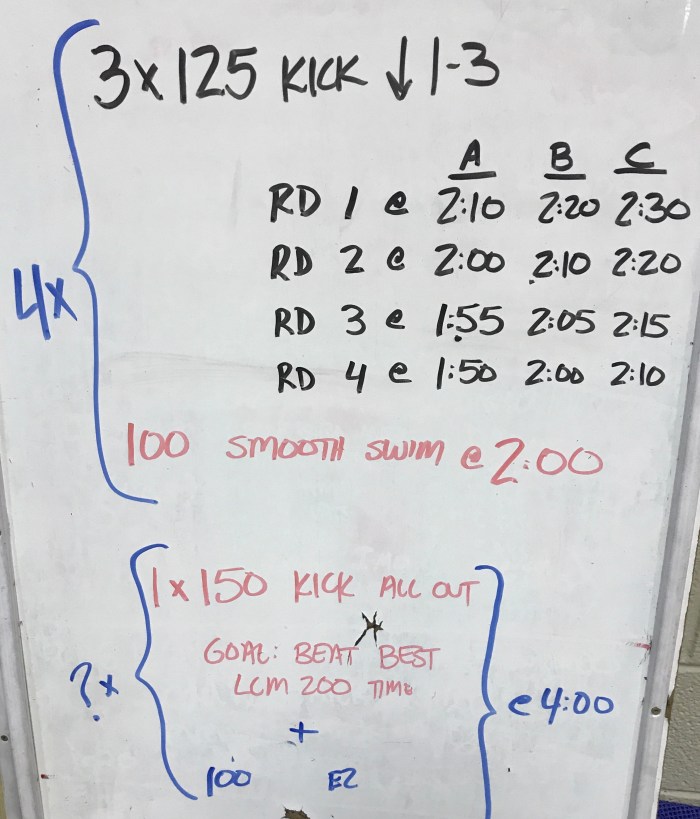 3 x 125 KICK ↓ 1-3
A B C
RD 1 @ 2:10 2:20 2:30
RD 2 @ 2:00 2:10 2:20
4x
RD 3 @ 1:55 2:05 2:15
RD 4 @ 1:50 2:00 2:10
100 SMOOTH SWIM @ 2:00
1 x 150 KICK ALL OUT
GOAL: BEAT BEST
LCM 200 TIME
?x
@ 4:00
+
100 EZ